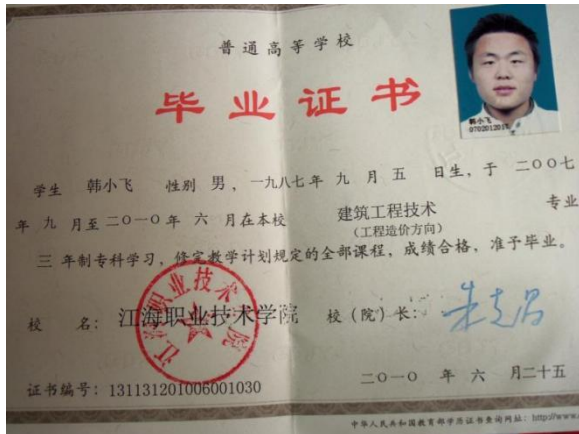 普通高等学校
毕业证书
韩小飞
学生 韩小飞 性别 男，一九八七年 九 月 五 日生，于 二〇〇七
年 九 月至 二〇一〇 年 六 月在本校 建筑工程技术 专业
（工程造价方向）
三 年制专科学习，修完教学计划规定的全部课程，成绩合格，准予毕业。
江海职业技术学院
校 名： 江海职业技术学院 校（院）长：
证书编号：131131201006001030
二〇一〇 年 六 月二十五
中华人民共和国教育部学历证书查询网址：http://www.